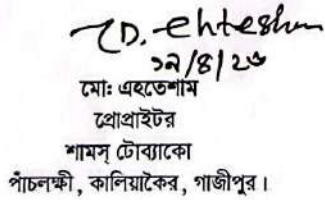 MD. Ehtesham
১৯/৪/২৩
মো: এহতেশাম
প্রোপ্রাইটর
শামস্ টোব্যাকো
পাঁচলক্ষী, কালিয়াকৈর, গাজীপুর।